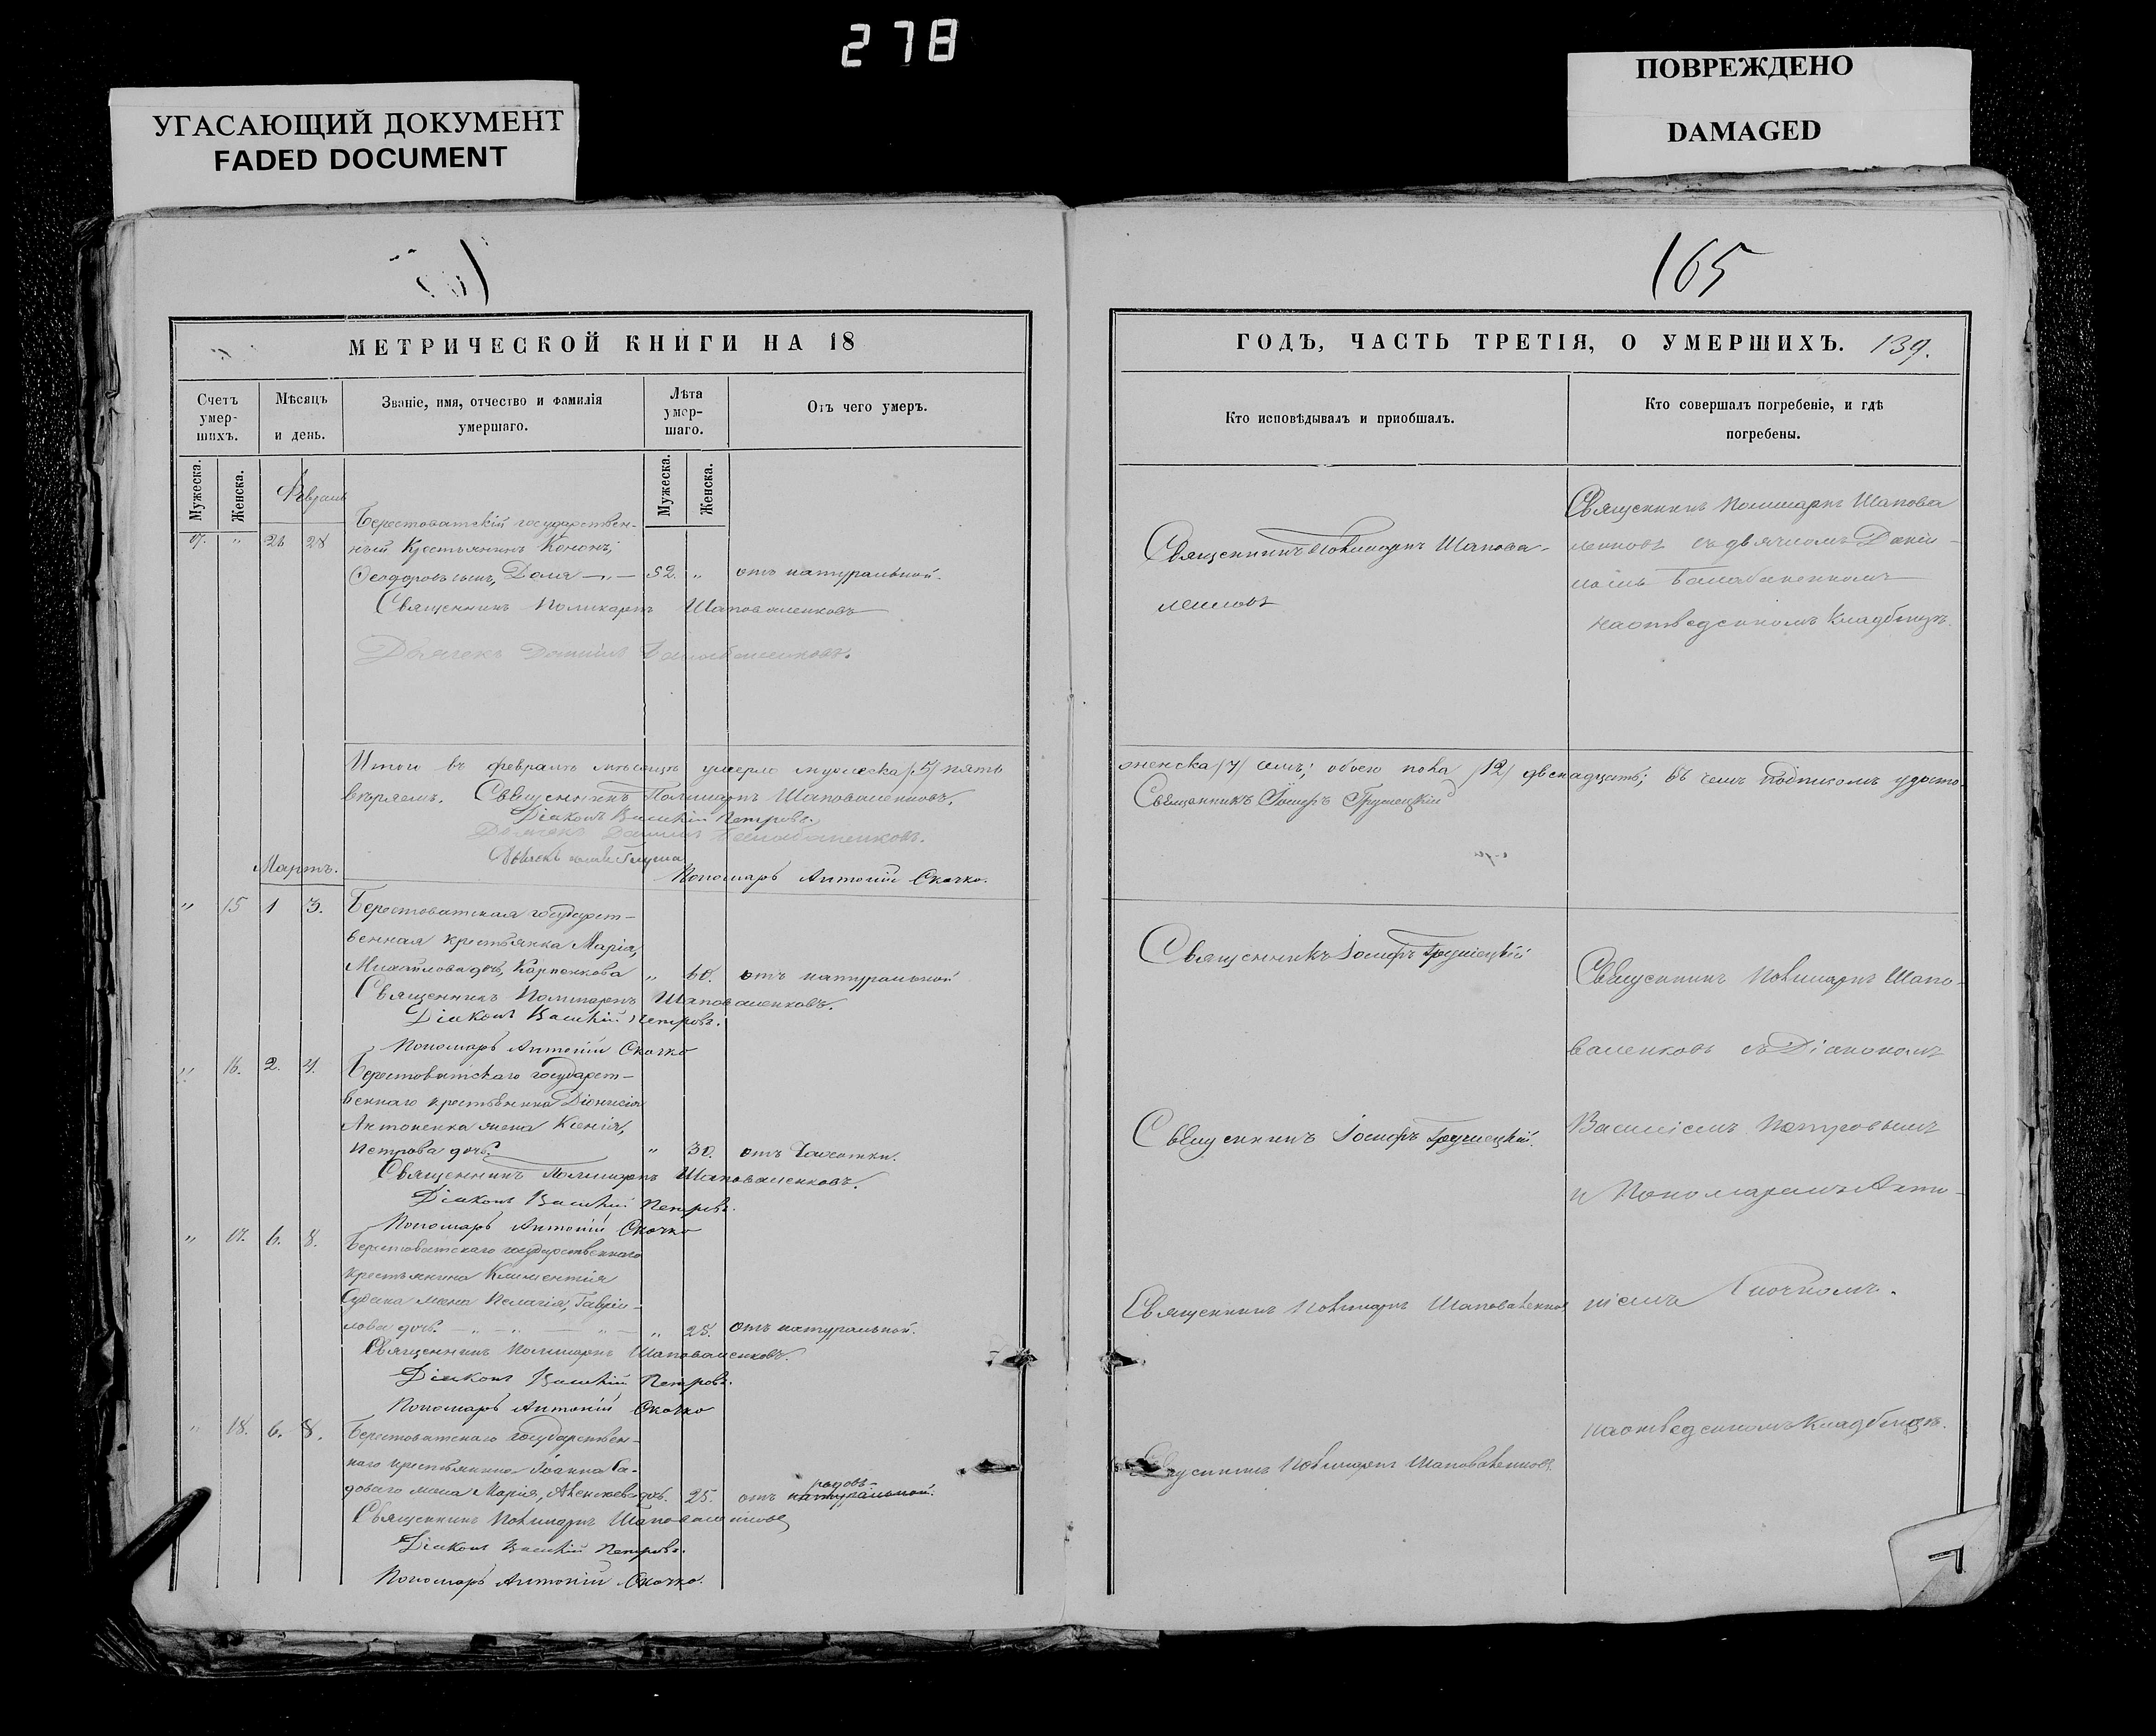 278
УГАСАЮЩИЙ ДОКУМЕНТ
FADED DOCUMENT
ПОВРЕЖДЕНО
DAMAGED
165
МЕТРИЧЕСКОЙ КНИГИ НА 18
Счетъ умер-шихъ.
Мѣсяцъ и день.
Званіе, имя, отчество и фамилія умершаго.
Лѣта умер-шаго.
Отъ чего умеръ.
Мужеска.
Женска.
Мужеска.
Женска.
Февраль
Берестоватскій государствен-
26 28 ный Крестьянинъ Кононъ,
Ѳеодоровъ сынъ, Доля 52. " отъ натуральной.
Священникъ Поликарпъ Шаповаленковъ
Дьячекъ Даніилъ Балабаненковъ.
Итого въ февралѣ мѣсяцѣ умерло мужеска /5/ пять
вѣряемъ. Священникъ Поликарпъ Шаповаленковъ.
Діаконъ Василій Петровъ.
Дьячекъ Даніилъ Балабаненковъ.
Пономарь Антоній Скочко.
Мартъ.
" 15 1 3. Берестоватская государст-
венная крестьянка Марія,
Михайлова дочь, Карпенкова " 60. отъ натуральной
Священникъ Поликарпъ Шаповаленковъ.
Діаконъ Василій Петровъ.
Пономарь Антоній Скочко
" 16. 2. 4. Берестоватскаго государст-
веннаго крестьянина Діонисія
Антоненка жена Ксенія,
Петрова дочь. " 30. отъ Чахотки.
Священникъ Поликарпъ Шаповаленковъ.
Діаконъ Василій Петровъ.
Пономарь Антоній Скочко
" 17. 6. 8. Берестоватскаго государственнаго
крестьянина Климентія
жена Пелагія, Гавріи-
лова дочь. " 25. отъ натуральной.
Священникъ Поликарпъ Шаповаленковъ.
Діаконъ Василій Петровъ.
Пономарь Антоній Скочко
" 18. 6. 8. Берестоватскаго государствен-
наго крестьянина Іоанна Га-
доваго жена Марія, Алексѣева дочь. 25. отъ натуральной. родовъ
Священникъ Поликарпъ Шаповаленковъ
Діаконъ Василій Петровъ.
Пономарь Антоній Скочко.
ГОДЪ, ЧАСТЬ ТРЕТІЯ, О УМЕРШИХЪ. 139.
Кто исповѣдывалъ и приобщалъ.
Кто совершалъ погребеніе, и гдѣ погребены.
Священникъ Поликарпъ Шапова-
ленковъ
Священникъ Поликарпъ Шапова
ленковъ съ дьячкомъ Дані-
иломъ Балабаненкомъ
на отведенномъ кладбищѣ.
женска /7/ семь; обоего пола /12/ двенадцать; въ чемъ подписомъ удосто
Священникъ Іосифъ Грушецкій
Священникъ Іосифъ Грушецкій
Священникъ Поликарпъ Шапо-
валенковъ съ Діакономъ
Священникъ Іосифъ Грушецкій.
Василіемъ Петровымъ
и Пономаремъ Анто-
Священникъ Поликарпъ Шаповаленковъ
ніемъ Скочкомъ.
на отведенномъ кладбищѣ.
Священникъ Поликарпъ Шаповаленковъ.